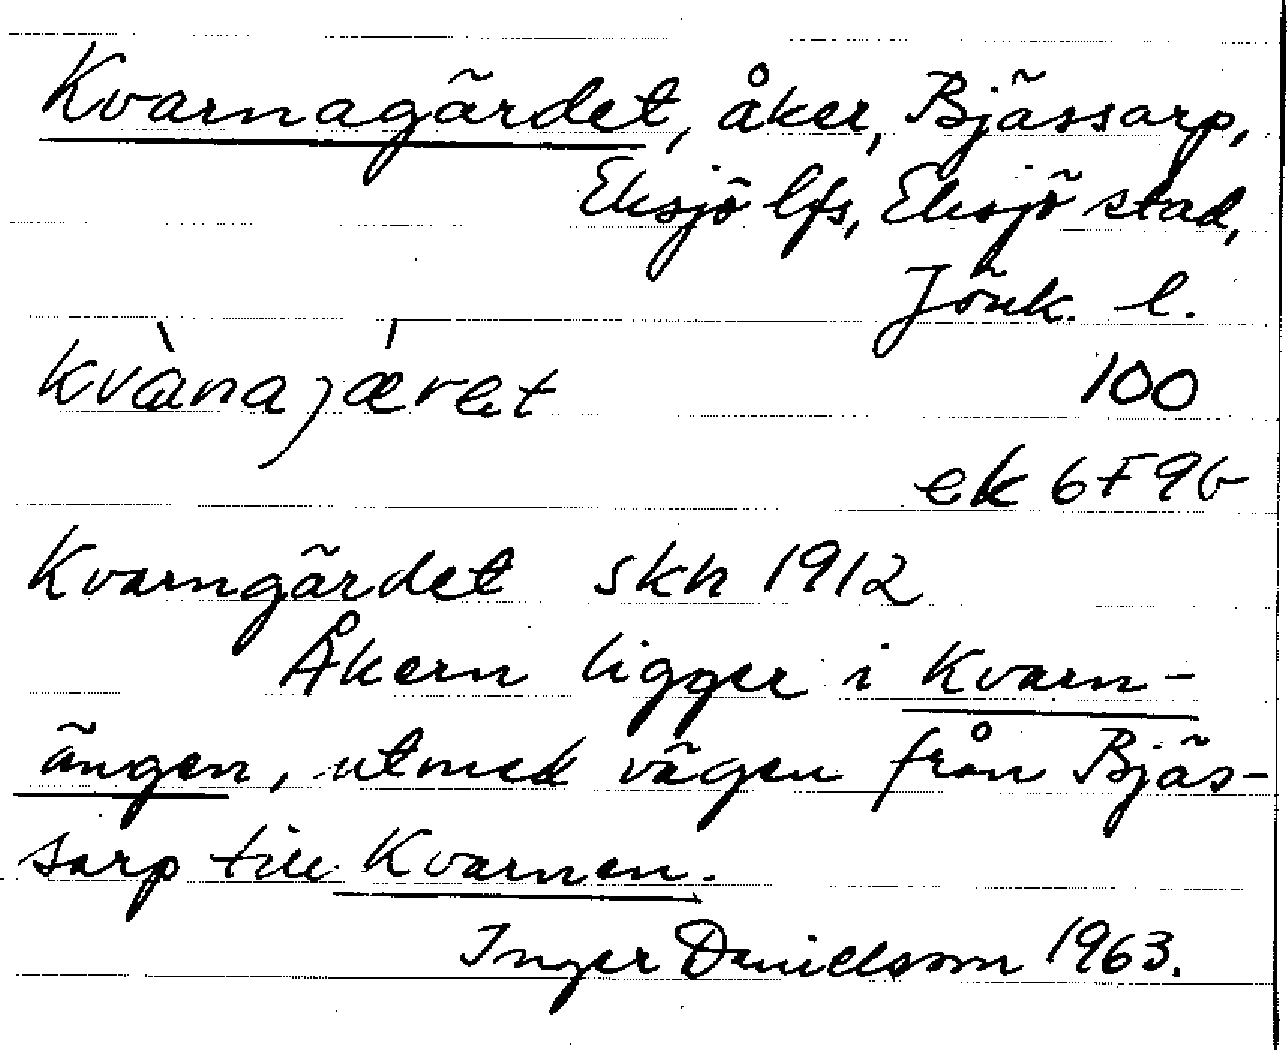 Kvarnagärdet, åker, Bjässarp,
Eksjö lfs, Eksjö stad,
Jönk. l.
kvànajǽret
100
ek 6F9b
Kvarngärdet skh 1912
Åkern ligger i Kvarn-
ängen, utmed vägen från Bjäs-
sarp till Kvarnen.
Inger Danielsson 1963.